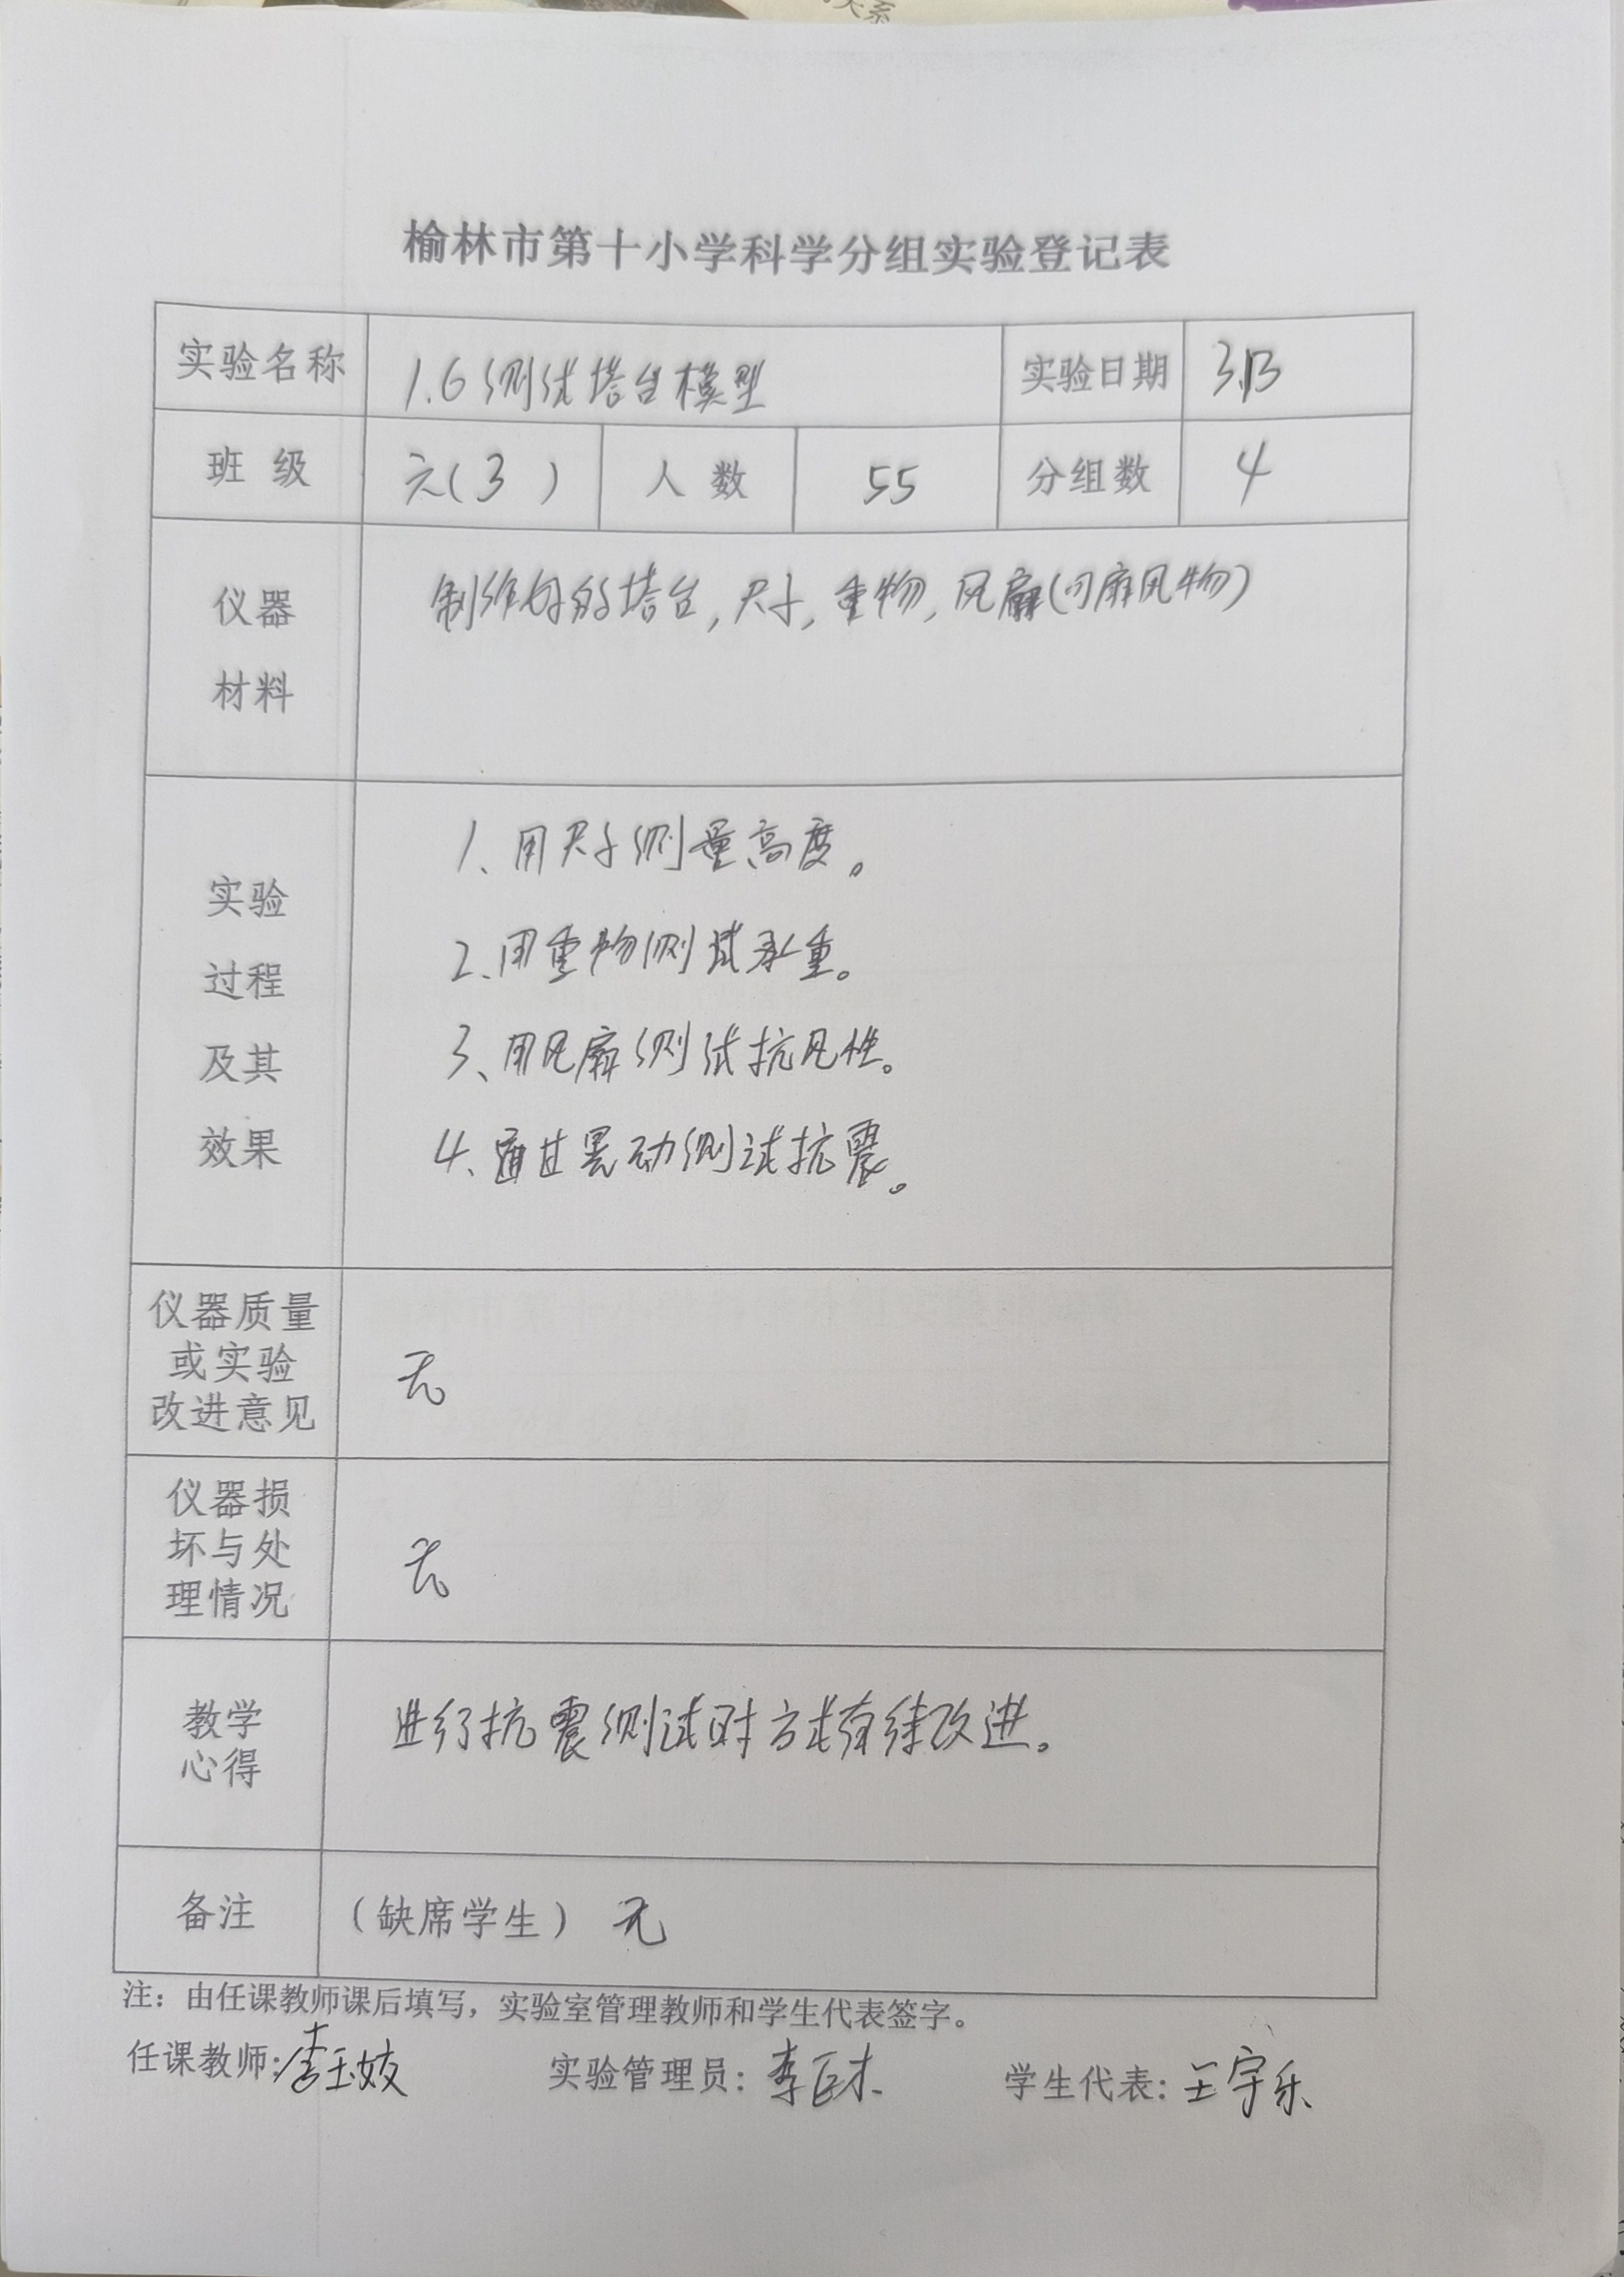 关系
榆林市第十小学科学分组实验登记表
实验名称 1.6测试塔台模型 实验日期 3.13
班 级 六(3) 人 数 55 分组数 4
仪器
材料
制作好的塔台,尺子,重物,风扇(可扇风物)
实验
过程
及其
效果
1、用尺子测量高度。
2、用重物测试承重。
3、用风扇测试抗风性。
4、通过晃动测试抗震。
仪器质量
或实验
改进意见
无
仪器损
坏与处
理情况
无
教学
心得
进行抗震测试时方式有待改进。
备注 (缺席学生) 无
注：由任课教师课后填写，实验室管理教师和学生代表签字。
任课教师:李玉姣 实验管理员: 李 学生代表: 王宇乐